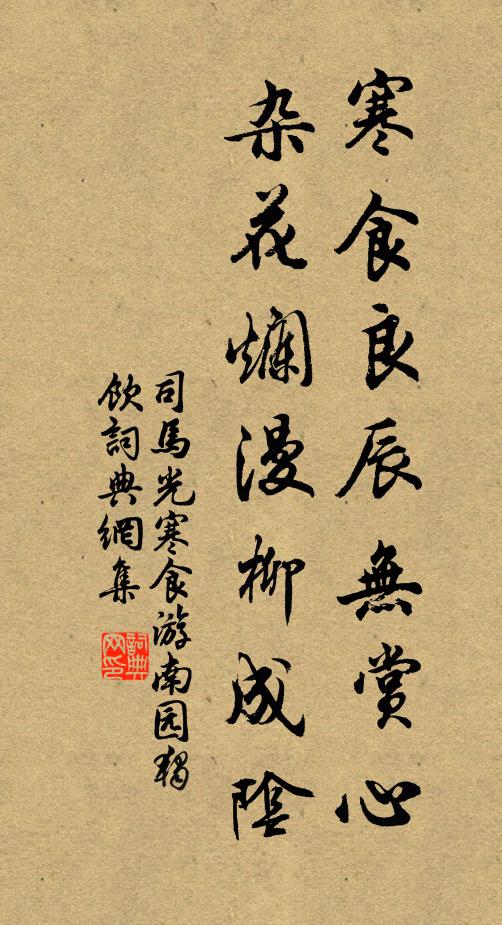 寒食良辰無賞心
杂花爛漫柳成陰
司馬光寒食游南园獨
飲詞典網集
詞典网印